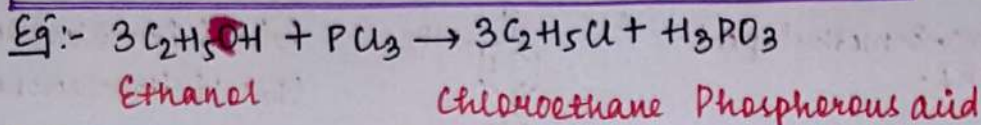 Eg:- 3C₂H₅OH + PCl₃ → 3C₂H₅Cl + H₃PO₃
Ethanol Chloroethane Phosphorous acid